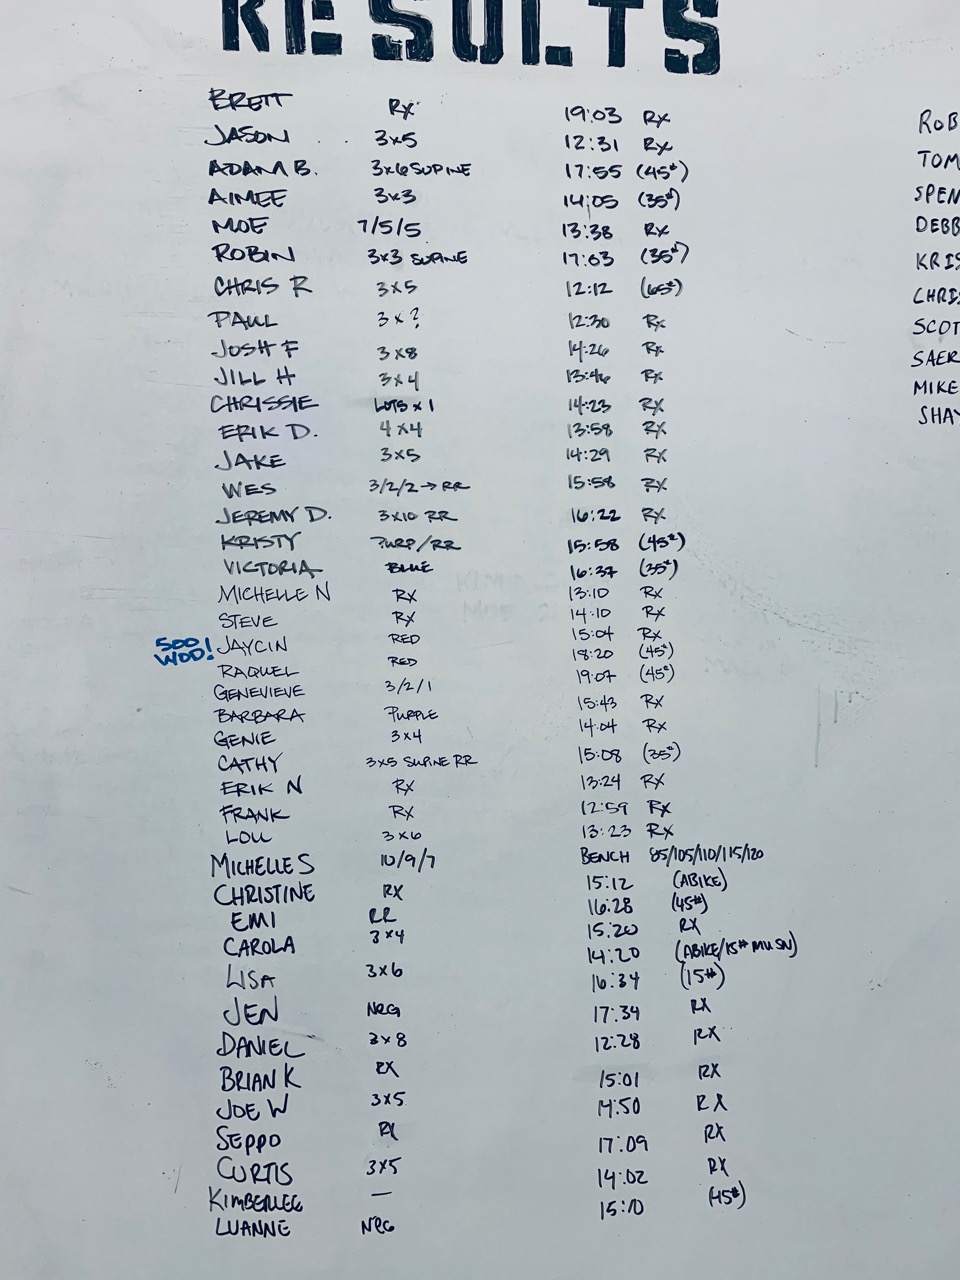 RESULTS
BRETT RX 19:03 RX
JASON 3x5 12:31 RX
ADAM B. 3x6 SUPINE 17:55 (45#)
AIMEE 3x3 14:05 (35#)
MOE 7/5/5 13:38 RX
ROBIN 3x3 SUPINE 17:03 (35#)
CHRIS R 3x5 12:12 (65#)
PAUL 3x? 12:30 RX
JOSH F 3x8 14:26 RX
JILL H 3x4 13:46 RX
CHRISSIE LOTS x 1 14:23 RX
ERIK D. 4x4 13:58 RX
JAKE 3x5 14:29 RX
WES 3/2/2→RR 15:58 RX
JEREMY D. 3x10 RR 16:22 RX
KRISTY PURP/RR 15:58 (45#)
VICTORIA BLUE 16:37 (35#)
MICHELLE N RX 13:10 RX
STEVE RX 14:10 RX
500 WOD! JAYCIN RED 15:04 RX
RAQUEL RED 18:20 (45#)
GENEVIEVE 3/2/1 19:07 (45#)
BARBARA PURPLE 15:43 RX
GENIE 3x4 14:04 RX
CATHY 3x5 SUPINE RR 15:08 (35#)
ERIK N RX 13:24 RX
FRANK RX 12:59 RX
LOU 3x6 13:23 RX
MICHELLE S 10/9/7 BENCH 85/105/110/115/120
CHRISTINE RX 15:12 (ABIKE)
EMI RR 16:28 (45#)
CAROLA 3x4 15:20 RX
LISA 3x6 14:20 (ABIKE/15# MU SN)
JEN NRG 16:34 (15#)
DANIEL 3x8 17:34 RX
BRIAN K RX 12:28 RX
JOE W 3x5 15:01 RX
SEPPO RX 14:50 RX
CURTIS 3x5 17:09 RX
KIMBERLEE — 14:02 RX
LUANNE NRG 15:10 (45#)
ROB
TOM
SPEN
DEBB
KRIS
CHRIS
SCOT
SAER
MIKE
SHAY